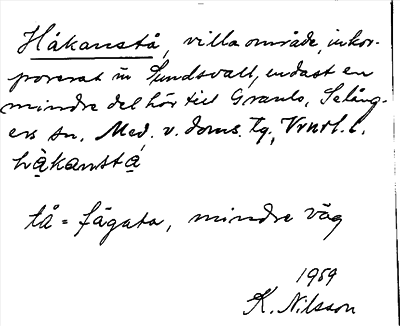 Håkanstå, villaområde, inkor-
porerat in Sundsvall, endast en
mindre del hör till Granlo, Selång-
ers sn. Med. v. doms. Tg., Vrnrl. l.
håkanstå
tå = fägata, mindre väg
1959
K. Nilsson